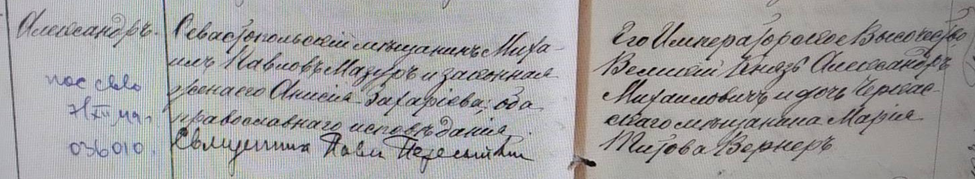 Александръ.
пас. свво
036010.
Севастопольскій мѣщанинъ Миха-
илъ Павловъ Мазуръ и законная
жена его Анисія Захаріева; оба
православнаго исповѣданія.
Священникъ Павелъ
Его Императорское Высочество
Великій Князь Александръ
Михаиловичъ и дочь Черкас-
скаго мѣщанина Марія
Титова Вернеръ